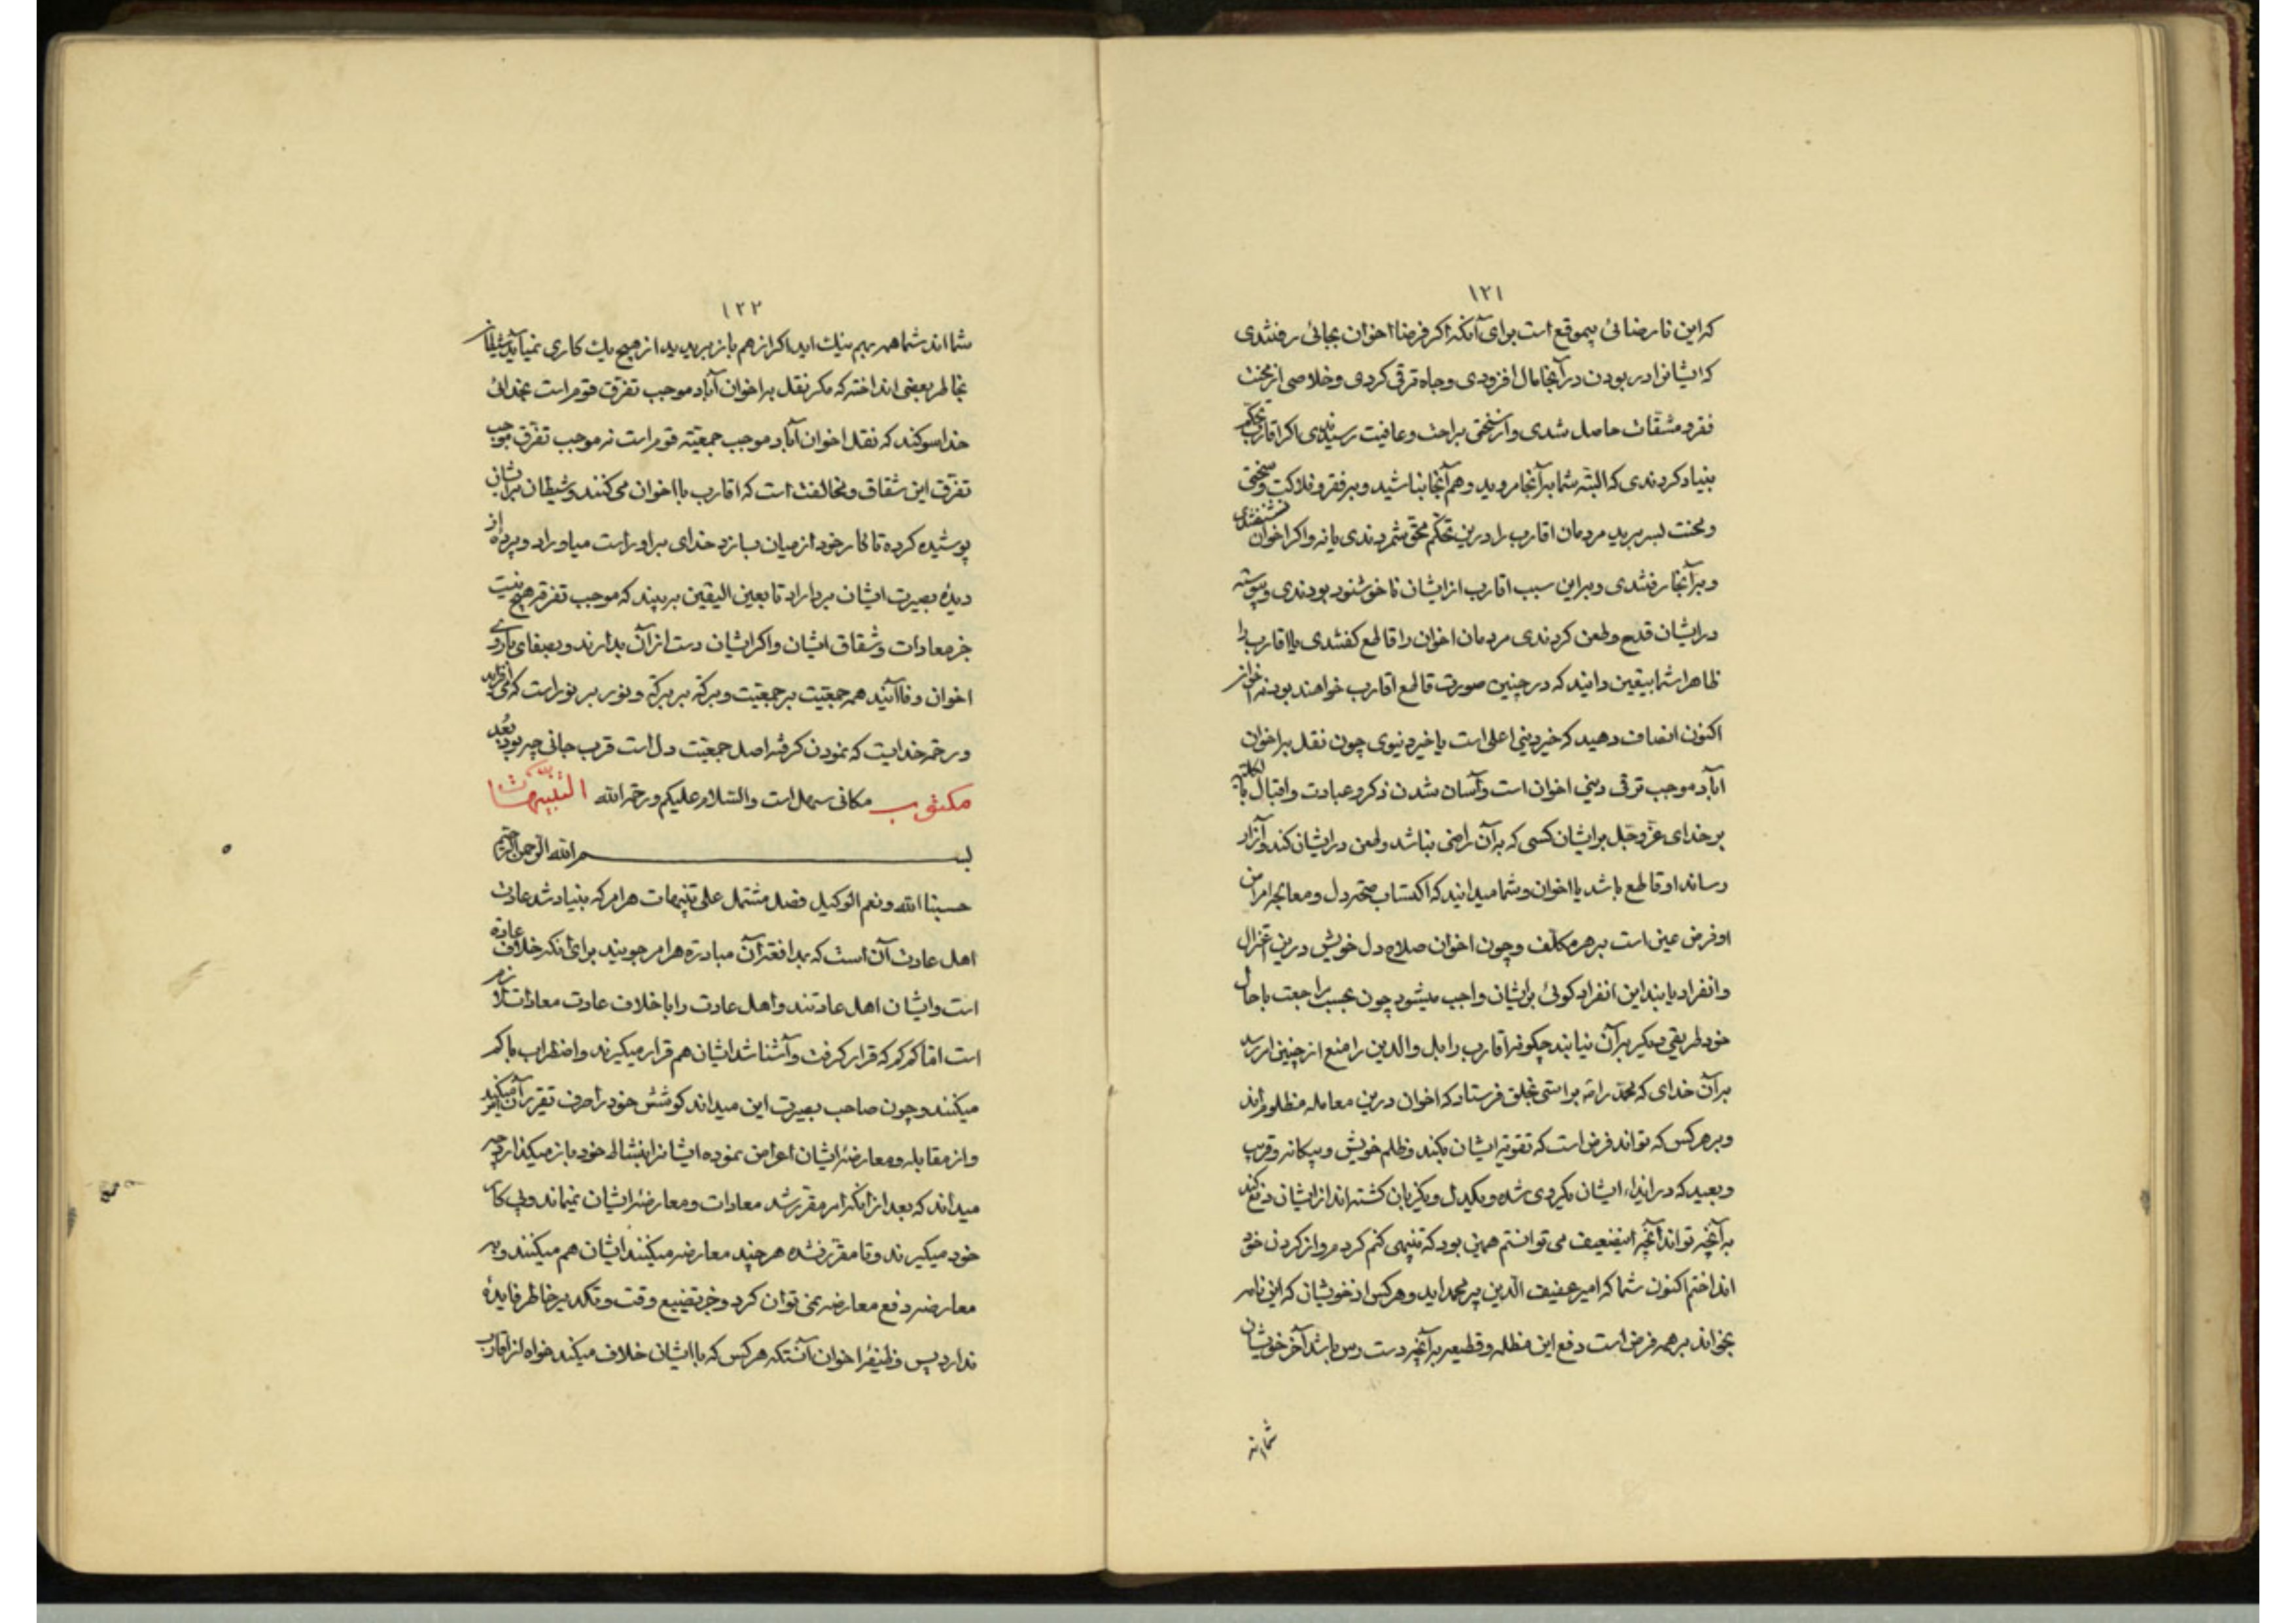 ۱۲۱
که این نارضائی بیموقع است برای آنکه اکر فرضا اخوان بجائی رفتندی
که ایشانرا در بودن در آنجا مال افزودی و جاه ترقی کردی و خلاصی از محنت
فقر و مشقات حاصل شدی و از سختی براحت و عافیت رسیدندی اکر اقارب تحکم
بنیاد کردندی که البته شما بر آنجا مروید و هم آنجا بباشید و بر فقر و فلاکت و سختی
و محنت بسر برید مردمان اقارب را درین تحکم محق شمردندی یا نه و اکر اخوان نشنفتندی
و بر آنجا رفتندی و بر این سبب اقارب از ایشان ناخوشنود بودندی و پیوسته
در ایشان قدح و طعن کردندی مردمان اخوان را قاطع کفتندی یا اقارب را
ظاهرا شما بیقین دانید که در چنین صورت قاطع اقارب خواهند بود نه اخوان
اکنون انصاف دهید که خیر دینی اعلی است یا خیر دنیوی چون نقل بر اخوان
آباد موجب ترقی دینی اخوان است و آسان شدن ذکر و عبادت و اقبال بالکلیه
بر خدای عز و جل بر ایشان کسی که بر آن راضی نباشد و طعن در ایشان کند و آزار
رساند او قاطع باشد یا اخوان و شما میدانید که اکتساب صحة دل و معالجه امراض
او فرض عین است بر هر مکلف و چون اخوان صلاح دل خویش درین اعتزال
و انفراد یابند این انفراد کوئی بر ایشان واجب میشود چون بحسب مراجعت باحال
خود طریقی دیکر بر آن نیابند چکونه اقارب را بل والدین را منع از چنین امر رسد
بر آن خدای که محمد را براستی بخلق فرستاد که اخوان درین معامله مظلوم اند
و بر هر کس که تواند فرض است که تقویة ایشان بکند و ظلم خویش و بیکانه و قریب
و بعید که در ایذاء ایشان یکروی شده و یکدل و یکزبان کشته اند از ایشان دفع کند
بر آنچه تواند آنچه اینضعیف می توانستم همین بود که تنبیهی کنم کردم و از کردن خود
انداختم اکنون شما که امیر عفیف الدین پیر محمد اید و هر کس از خویشان که این نامه
بخواند بر همه فرض است دفع این مظلمه و قطیعه بر آنچه دست رس باشد آخر خویشان
شما اند
۱۲۲
شما اند شما همه بهم نیک اید اکر از هم باز برید از هیچ یک کاری نمیآید شیطان
بخاطر بعضی انداخته که مکر نقل بر اخوان آباد موجب تفرق قوم است بخدائی
خدا سوکند که نقل اخوان آباد موجب جمعیة قوم است نه موجب تفرق موجب
تفرق این شقاق و مخالفت است که اقارب با اخوان می کنند و شیطان بر ایشان
پوشیده کرده تا کار خود از میان بسازد خدای بر او راست میاوراد و پرده از
دیدهٔ بصیرت ایشان برداراد تا بعین الیقین بر بینند که موجب تفرقه هیچ نیست
جز معادات و شقاق ایشان و اکر ایشان دست از آن بدارند و بصفای یاری
اخوان وفا آیند همه جمعیت بر جمعیت و برکة بر برکة و نور بر نور است که می افزاید
و رحمة خدایست که نمودن کرفته اصل جمعیت دل است قرب جانی چه بود بُعد
مکانی سهل است والسلام علیکم و رحمة الله مکتوب التنبیهات
بسم الله الرحمن الرحیم
حسبنا الله و نعم الوکیل فصل مشتمل علی تنبیهات هر امر که بنیاد شد عادت
اهل عادت آن است که بمدافعة آن مبادرة هر امر جویند برای آنکه خلاف عادة
است و ایشان اهل عادتند و اهل عادت را با خلاف عادت معادات لازم
است اما کم کم که قرار کرفت و آشنا شد ایشان هم قرار میکیرند و اضطراب ها کم
میکنند و چون صاحب بصیرت این میداند کوشش خود را صرف تقریر آن امر میکند
و از مقابله و معارضهٔ ایشان اعراض نموده ایشانرا بنشاط خود باز میکذارد چه
میداند که بعد از آنکه امر مقرر شد معادات و معارضهٔ ایشان نمیماند و پی کار
خود میکیرند و تا مقرر نشده هر چند معارضه میکنند ایشان هم میکنند و به
معارضه دفع معارضه نمی توان کرد و جز تضییع وقت و تکدیر خاطر فایدهٔ
ندارد پس وظیفهٔ اخوان آنستکه هر کس که با ایشان خلاف میکند خواه از اقارب